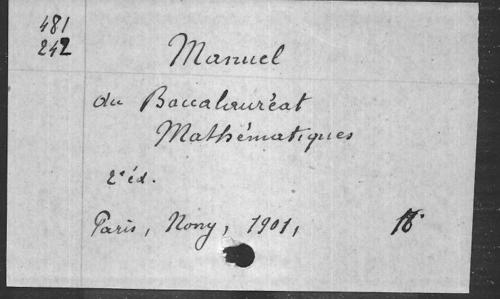 481
242
Manuel
du Baccalauréat
Mathématiques
2e éd.
Paris, Nony, 1901, 18°